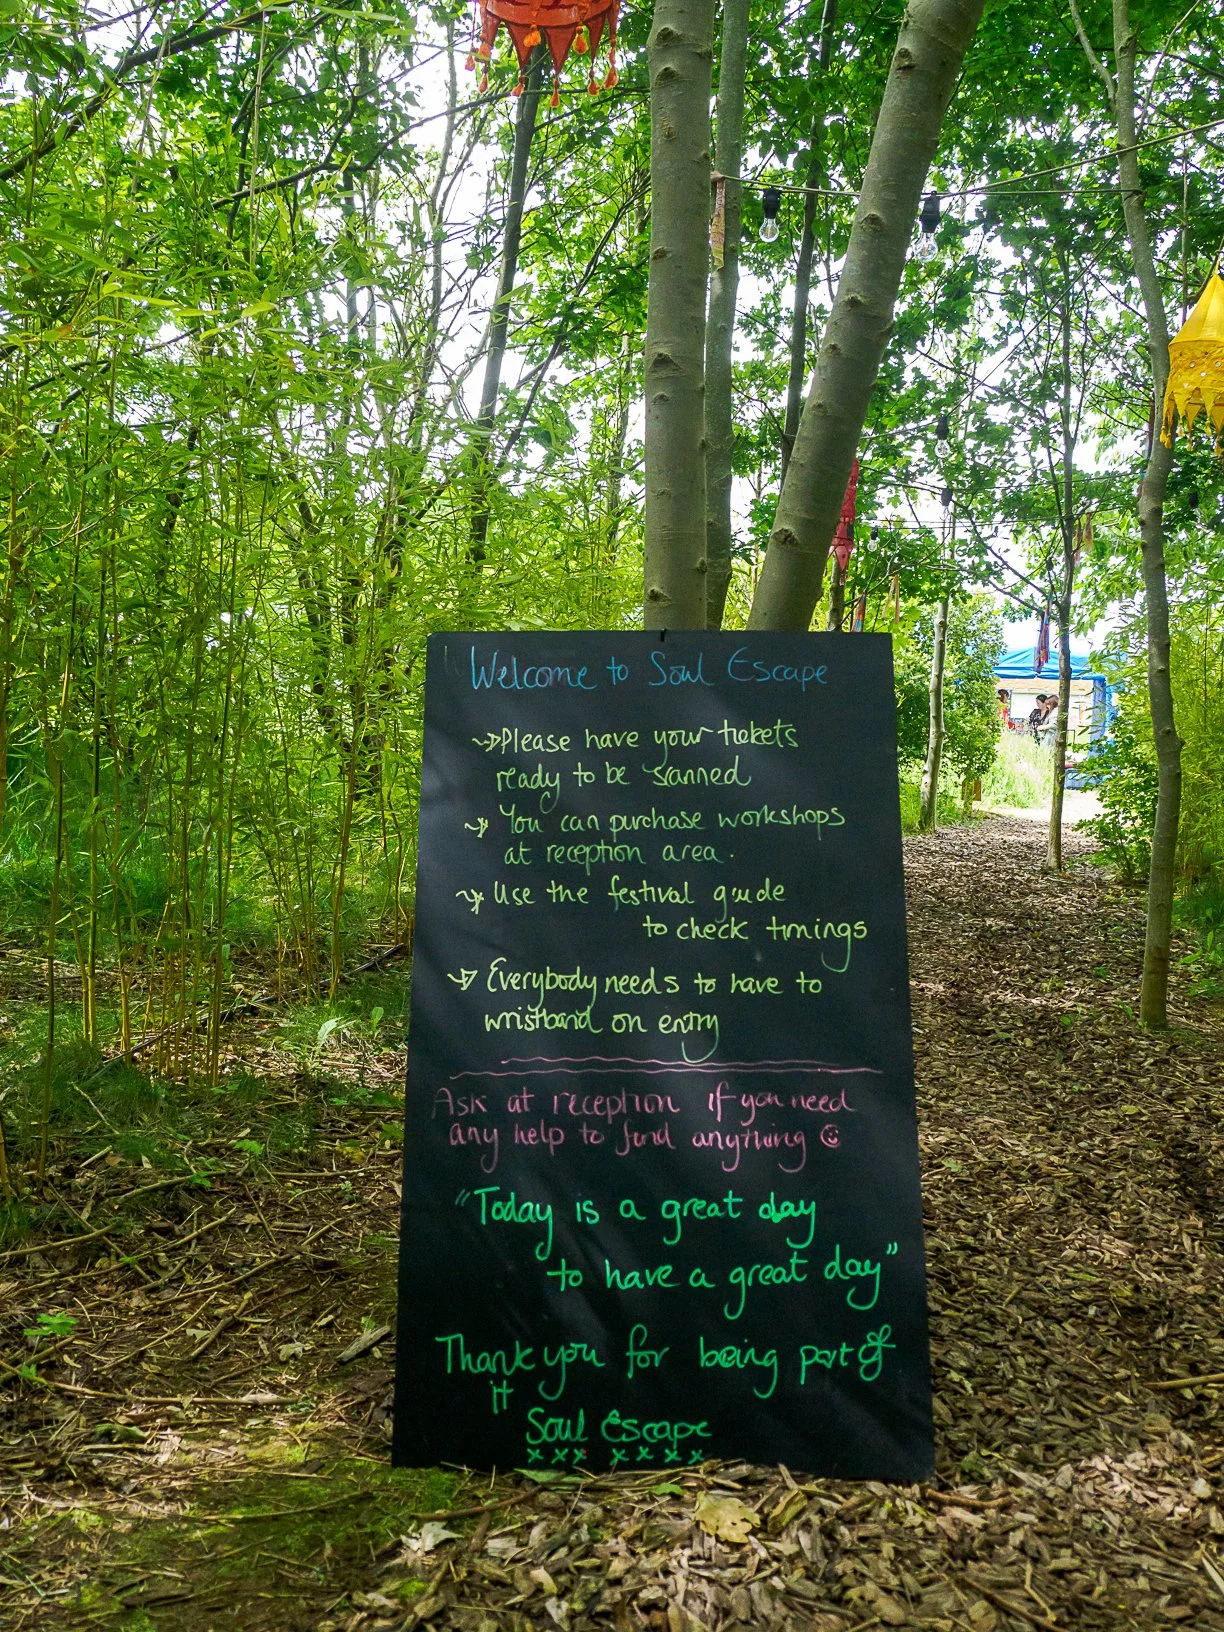 Welcome to Soul Escape
Please have your tickets
ready to be scanned
You can purchase workshops
at reception area.
Use the festival guide
to check timings
Everybody needs to have to
wristband on entry
Ask at reception if you need
any help to find anything ☺
"Today is a great day
to have a great day"
Thank you for being part of
it
Soul Escape
x x x x x x x